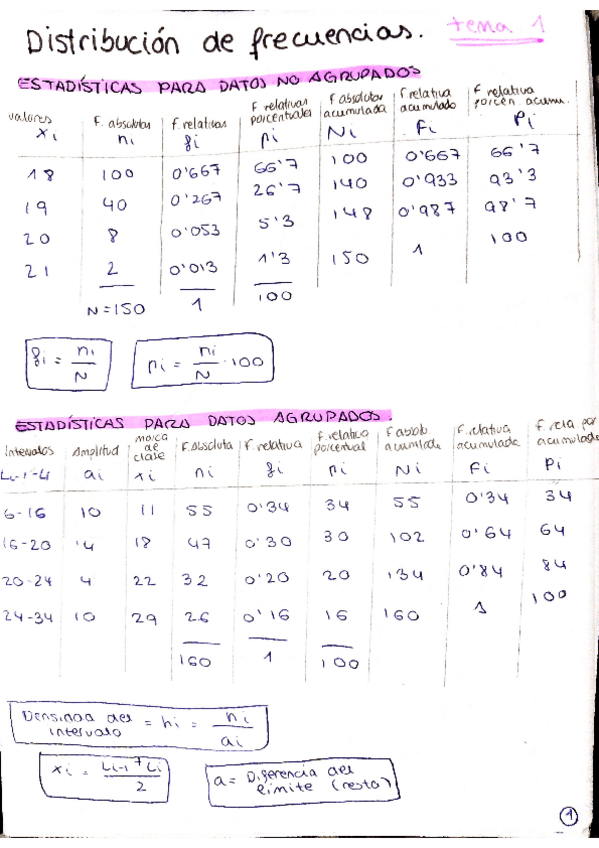 Distribución de frecuencias. tema 1
ESTADÍSTICAS PARA DATOS NO AGRUPADOS
valores xi | F. absolutas ni | f. relativas fi | F relativas porcentuales pi | F absolutas acumulada Ni | f. relativa acumulado Fi | F relativa porcen. acumu. Pi
18 100 0'667 66'7 100 0'667 66'7
19 40 0'267 26'7 140 0'933 93'3
20 8 0'053 5'3 148 0'987 98'7
21 2 0'013 1'3 150 1 100
N=150 1 100
fi = ni/N pi = ni/N · 100
ESTADÍSTICAS PARA DATOS AGRUPADOS.
Intervalos Li-1-Li | Amplitud ai | marca de clase xi | F. Absoluta ni | F. relativa fi | f. relativa porcentual pi | F absolu. acumulada Ni | F. relativa acumulada Fi | F. rela por acumulada Pi
6-16 10 11 55 0'34 34 55 0'34 34
16-20 4 18 47 0'30 30 102 0'64 64
20-24 4 22 32 0'20 20 134 0'84 84
24-34 10 29 26 0'16 16 160 1 100
160 1 100
Densidad del intervalo = hi = ni/ai
xi = Li-1+Li/2 a = Diferencia del límite (resto)
1